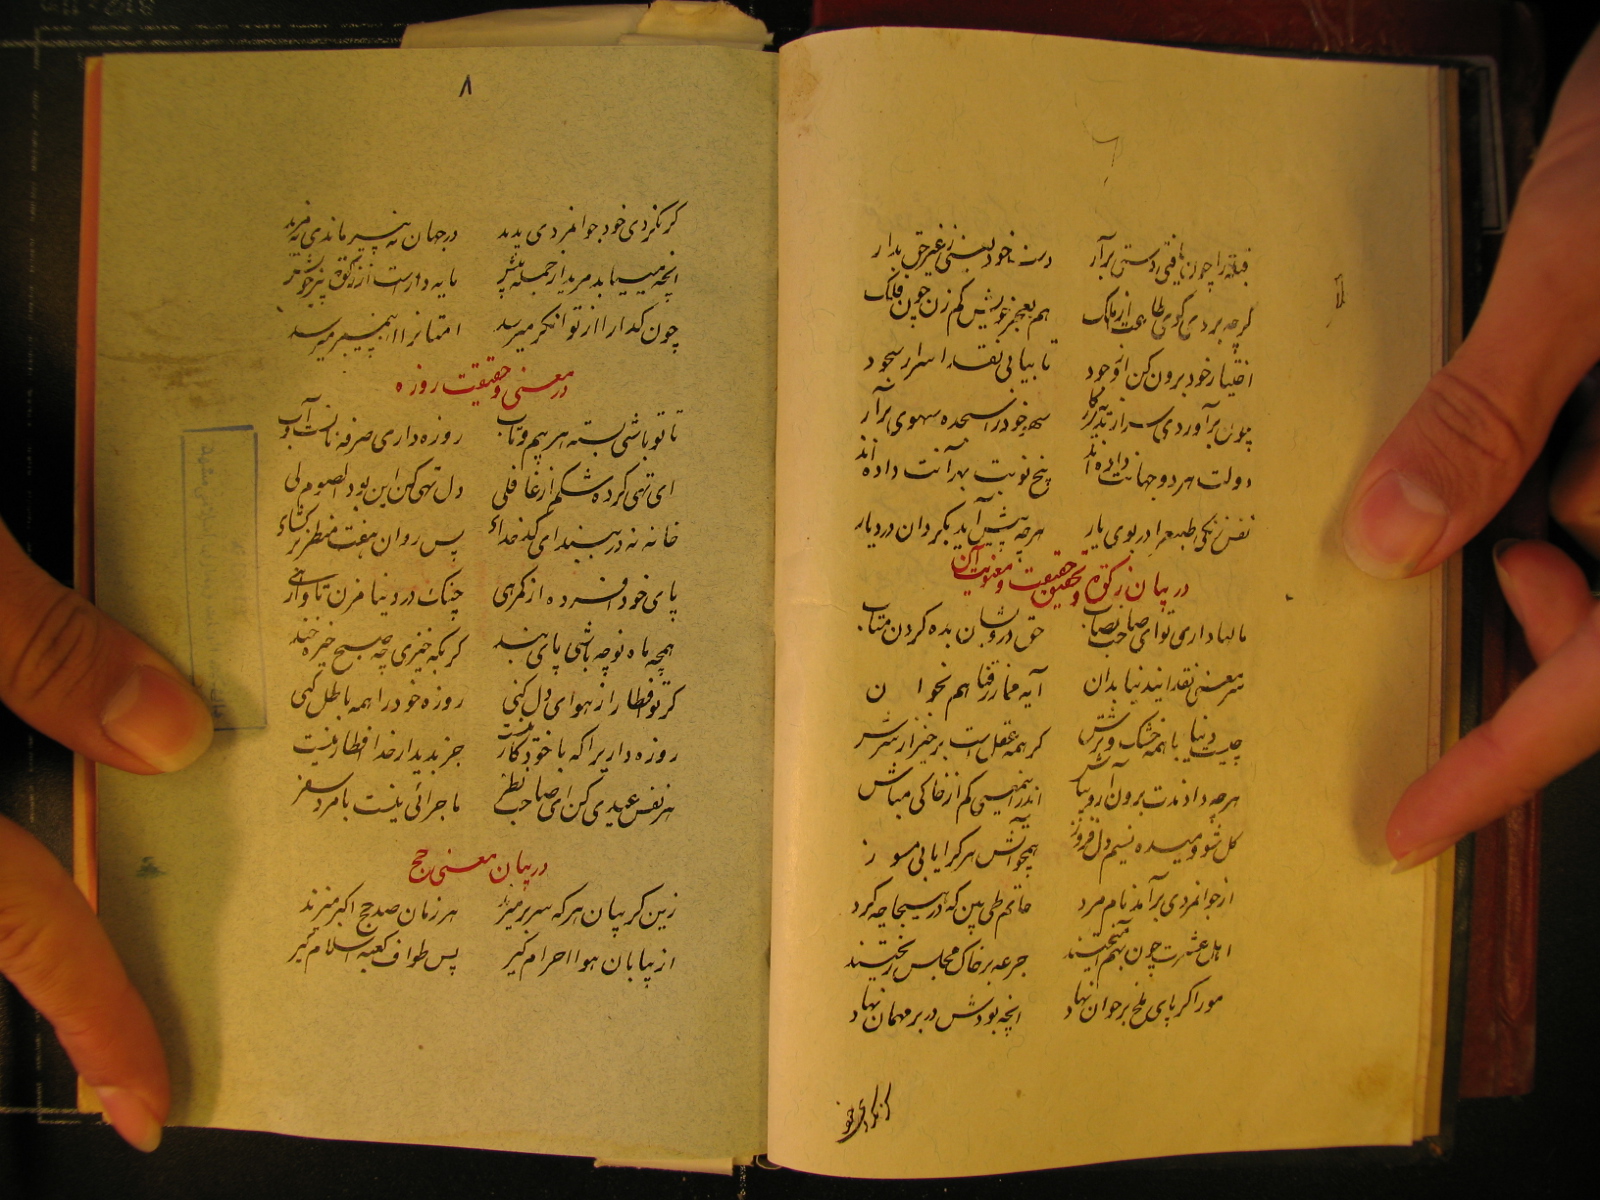 قبله را چون یافتی دستی برآر	دست خود یعنی ز غیر حق بدار
گرچه بردی گوی طاعت از ملک	هم بعجز خویش کم زن چون فلک
اختیار خود برون کن از وجود	تا بیابی نقد اسرار سجود
چون برآوردی سر از	سهو خود را سجده سهوی برآر
دولت هر دو جهانت داده اند	پنج نوبت بهر آنت داده اند
نفس زنگی طبعرا در بوی یار	هرچه پیش آید بگردان در دیار
در بیان زکوة و تحقیق حقیقت و معنویت آن
مالها داری تو ای صاحب نصاب	حق درویشان بده گردن متاب
سر معنی نقد ایند نیا بدان	آیه مما رزقنا هم بخوان
چیست دنیا با همه خشک و ترش	گر همه عقل است برخیز از سرش
هرچه دادندت برون آر و بپاش	اندرینمعنی کم از خاکی مباش
گل شو و میده نسیم دلفروز	همچو آتش هر کرا یابی مسوز
از جوانمردی برآمد نام مرد	حاتم طی بین که در هیجا چه کرد
اهل عشرت چون بهم آمیختند	جرعه بر خاک مجلس ریختند
مور اگر پای ملخ بر خوان نهاد	آنچه بودش در بر مهمان نهاد
گر نکردی خود
٨
گر نکردی خود جوانمردی پدید	در جهان نه پیر ماندی نه مرید
آنچه مییابد مرید از جمله بیش	مایه دارست از زکوة پیر خویش
چون گدا را از توانگر میرسد	امتانرا از پیمبر میرسد
در معنی و حقیقت روزه
تا تو باشی بسته هر پیچ و تاب	روزه داری صرفه نانست و آب
ای تهی کرده شکم از غافلی	دل تهی کن این بود الصوم لی
خانه نه در ببند ای کدخدای	پس روان هفت منظر برگشای
پای خود افسرده از گمرهی	چنگ در دنیا مزن تا وارهی
همچه ماه نو چه باشی پای بند	گر بگه خیزی چه صبح خیره خند
گر تو افطار از هوای دل کنی	روزه خود را همه باطل کنی
روزه داریرا که با خود کار نیست	جز بدیدار خدا افطار نیست
هر نفس عیدی کن ای صاحب نظر	ماجرائی نیست با مرد سفر
در بیان معنی حج
زین گریبان هر که سر بر میزند	هر زمان صد حج اکبر میزند
از بیابان هوا احرام گیر	پس طواف کعبه اسلام گیر